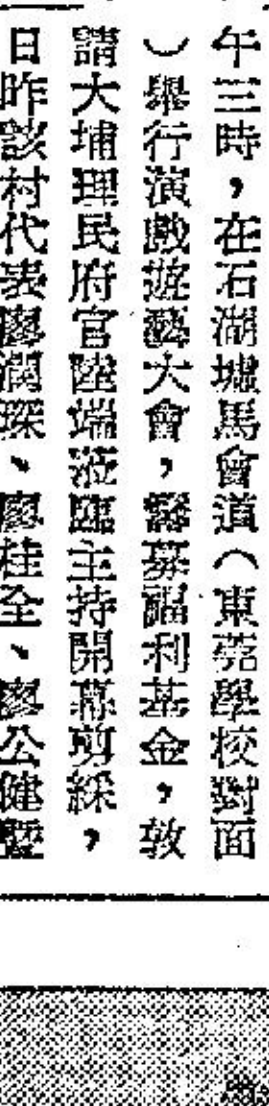 午三時，在石湖墟馬會道（東莞學校對面
）舉行演戲遊藝大會，籌募福利基金，敦
請大埔理民府官陸端蒞臨主持開幕剪綵，
日昨該村代表廖潤琛、廖桂全、廖公健暨